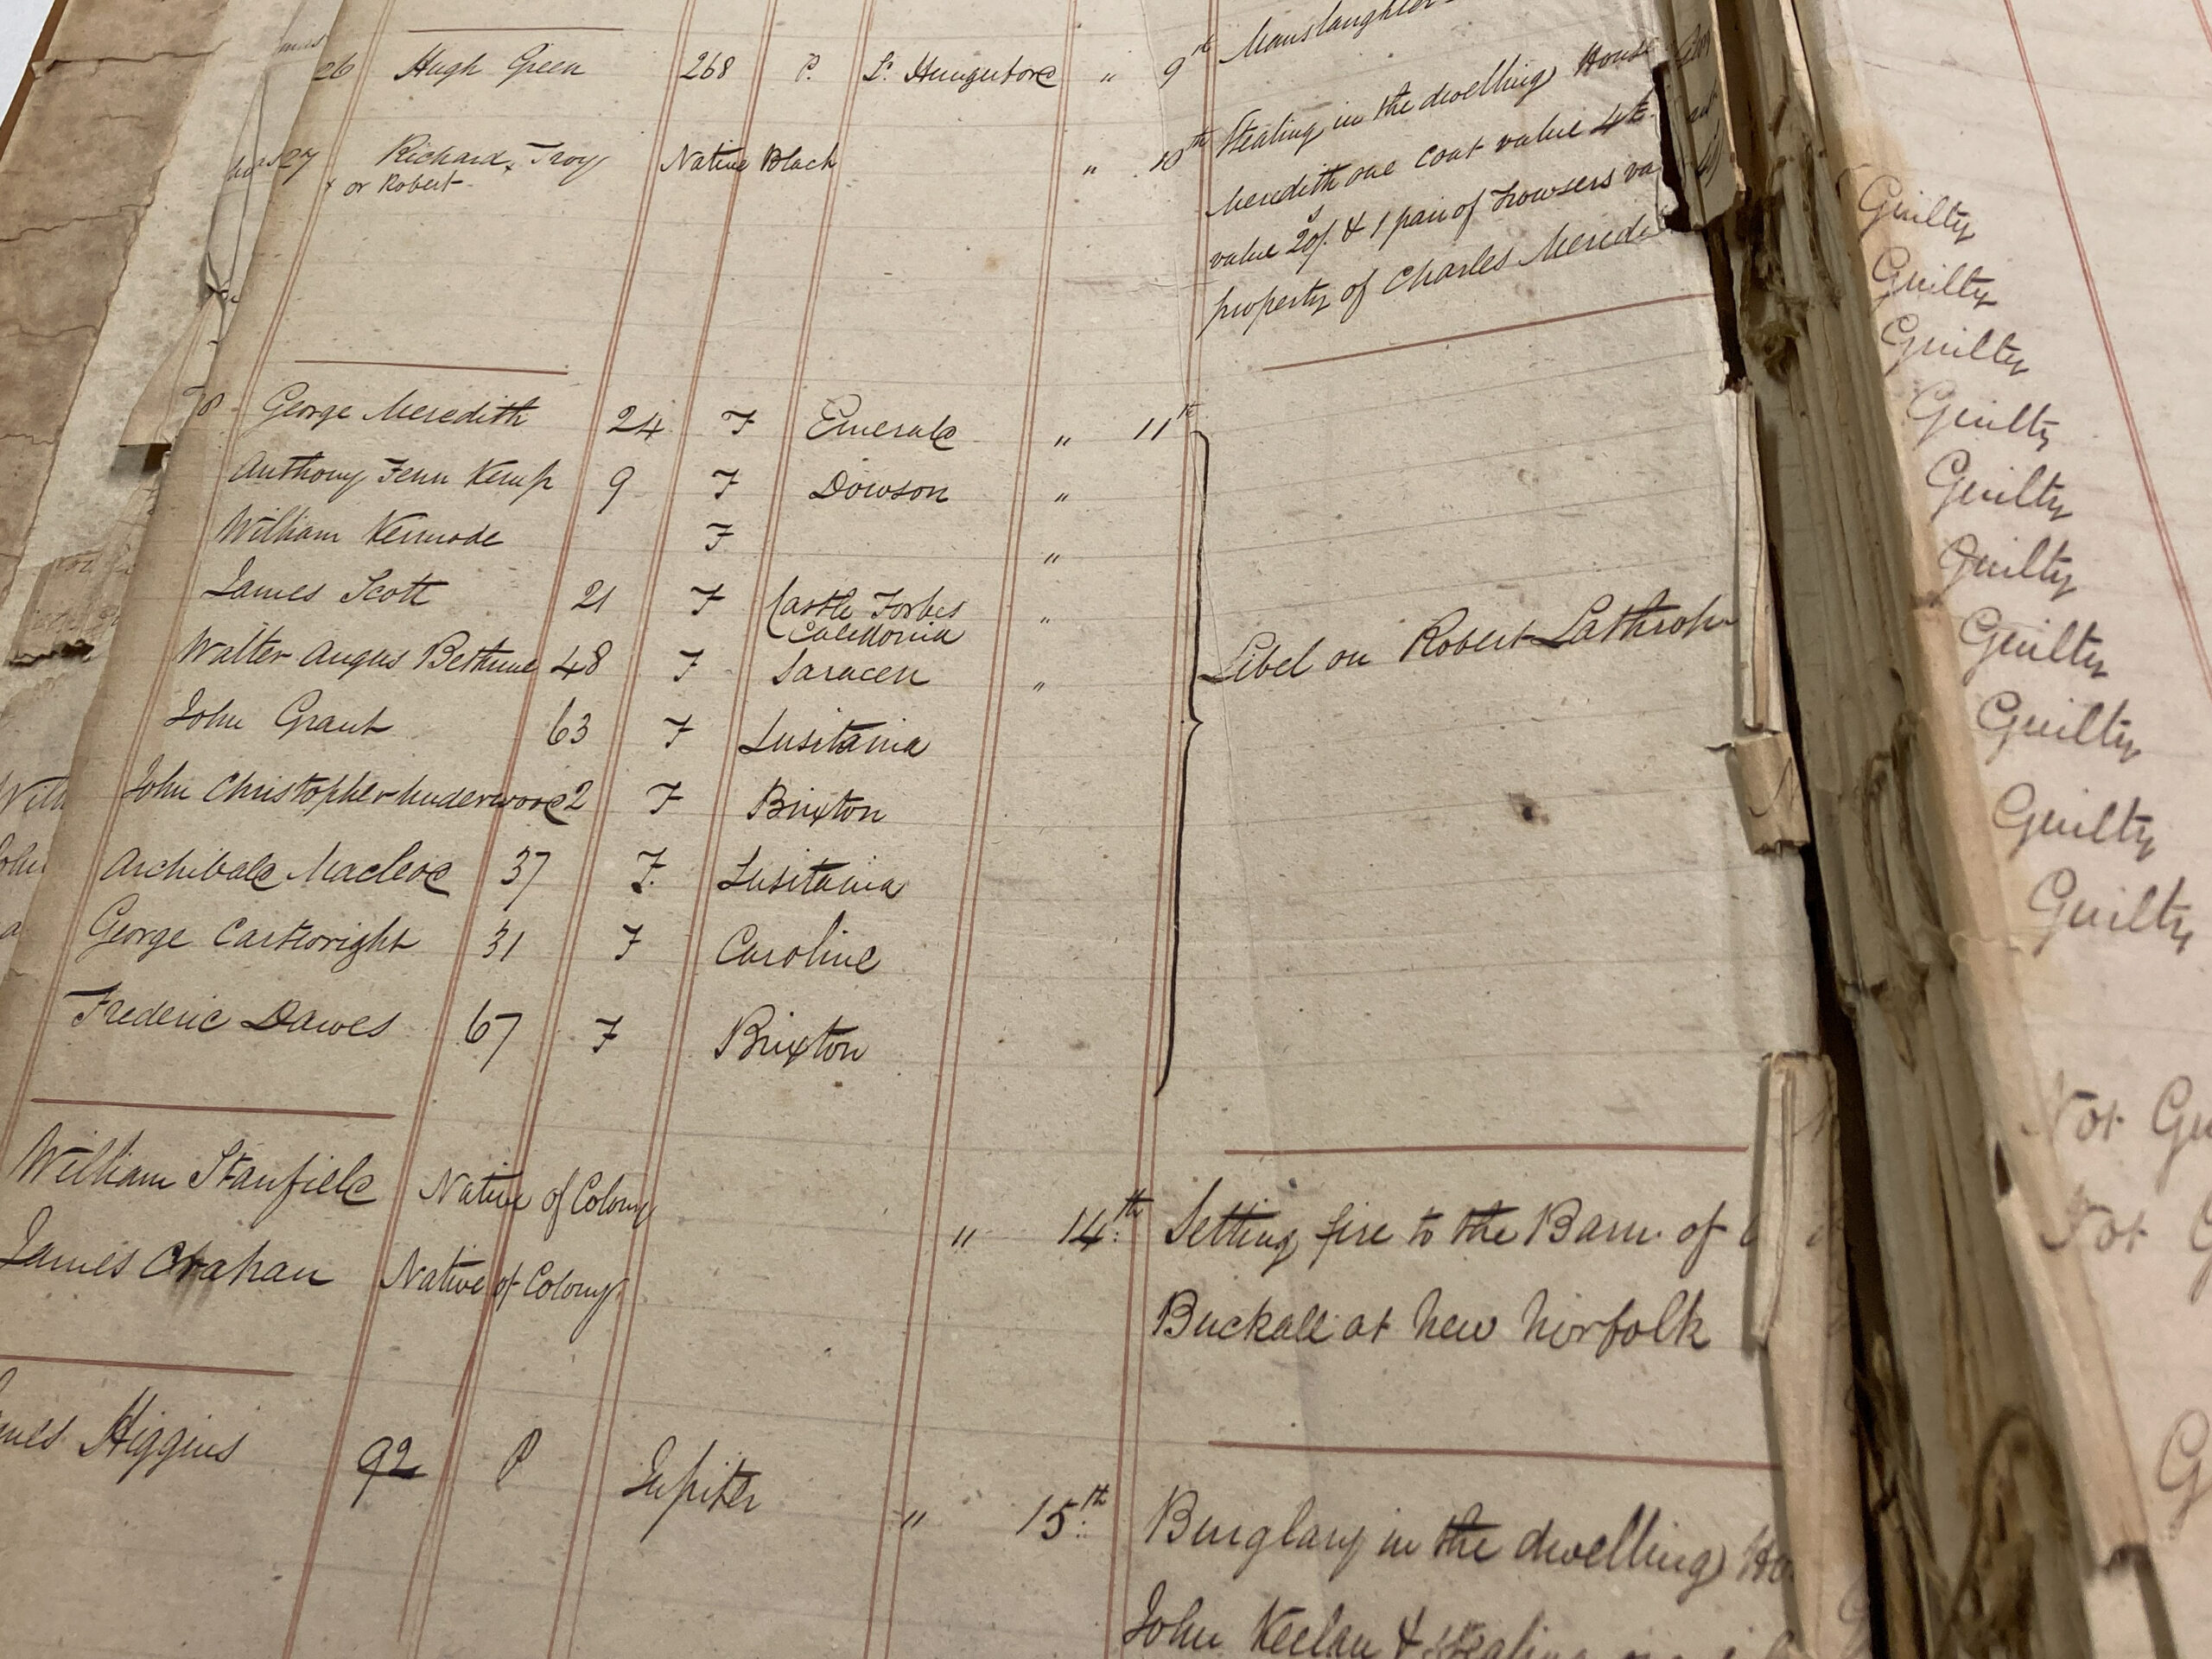 Manslaughter
26 Hugh Green 268 P. L. Hungerford " 9th
Stealing in the dwelling House
27 Richard x Troy Native Black " 10th
x or Robert
Meredith one coat value 4£
value 20s/. & 1 pair of Trowsers va
property of Charles Meredi
George Meredith 24 F Emerald " 11th
Anthony Fenn Kemp 9 F Dowson "
William Kermode F "
James Scott 21 F Castle Forbes "
Caledonia
Walter Angus Bethune 48 F Saracen "
Libel on Robert Lathrop
John Grant 63 F Lusitania
John Christopher Underwood 2 F Brixton
Archibald Macleod 37 F. Lusitania
George Cartwright 31 F Caroline
Frederic Dawes 67 F Brixton
William Stanfield Native of Colony
" 14th Setting fire to the Barn of
James Crahan Native of Colony
Buckall at New Norfolk
Higgins 92 P Jupiter " 15th
Burglary in the dwelling Ho
John Keelan & Stealing
Guilty
Guilty
Guilty
Guilty
Guilty
Guilty
Guilty
Guilty
Guilty
Guilty
Not Gu
Not G
G